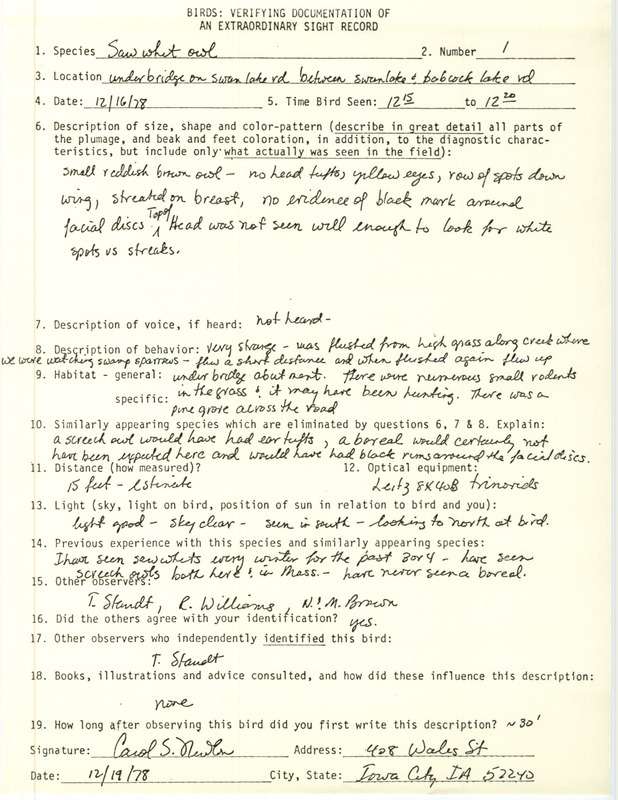 BIRDS: VERIFYING DOCUMENTATION OF
AN EXTRAORDINARY SIGHT RECORD
1. Species Saw whet owl 2. Number 1
3. Location under bridge on swan lake rd between swan lake & babcock lake rd
4. Date: 12/16/78 5. Time Bird Seen: 12 15 to 12 20
6. Description of size, shape and color-pattern (describe in great detail all parts of
the plumage, and beak and feet coloration, in addition, to the diagnostic charac-
teristics, but include only what actually was seen in the field):
small reddish brown owl - no head tufts, yellow eyes, row of spots down
wing, streaked on breast, no evidence of black mark around
facial discs. Top of Head was not seen well enough to look for white
spots vs streaks.
7. Description of voice, if heard: not heard-
8. Description of behavior: very strange - was flushed from high grass along creek where
we were watching swamp sparrows - flew a short distance and when flushed again flew up
9. Habitat - general: under bridge abutment. There were numerous small rodents
specific: in the grass & it may have been hunting. There was a
pine grove across the road
10. Similarly appearing species which are eliminated by questions 6, 7 & 8. Explain:
a screech owl would have had ear tufts, a boreal would certainly not
have been expected here and would have had black rims around the facial discs.
11. Distance (how measured)? 12. Optical equipment:
15 feet - estimate Leitz 8X40B trinovids
13. Light (sky, light on bird, position of sun in relation to bird and you):
light good - sky clear - seen in south - looking to north at bird.
14. Previous experience with this species and similarly appearing species:
I have seen saw whets every winter for the past 3 or 4 - have seen
screech owls both here & in Mass. - have never seen a boreal.
15. Other observers:
T. Staudt, R. Williams, N. & M. Brown
16. Did the others agree with your identification? yes.
17. Other observers who independently identified this bird:
T. Staudt
18. Books, illustrations and advice consulted, and how did these influence this description:
none
19. How long after observing this bird did you first write this description? ~30'
Signature: Carol S. Newlon Address: 408 Wales St
Date: 12/19/78 City, State: Iowa City IA 52240